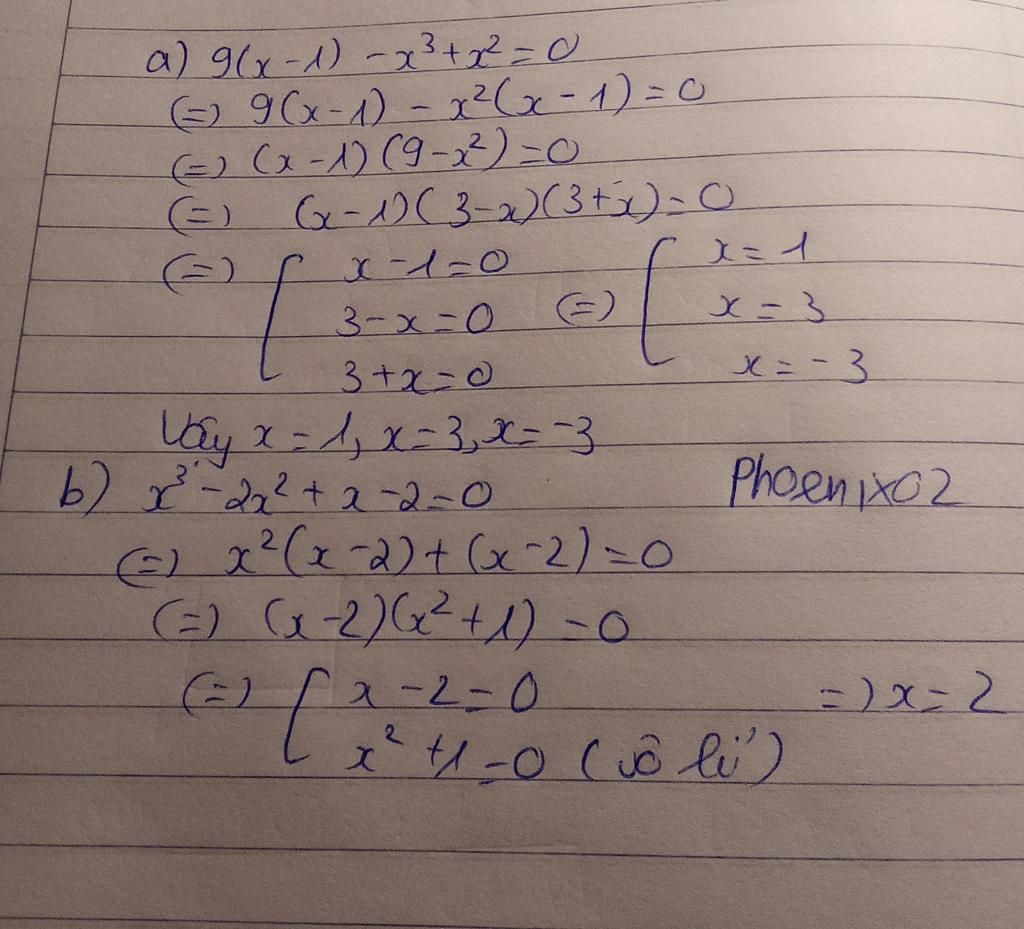 a) 9(x-1) -x³+x²=0
(=) 9(x-1) - x²(x-1)=0
(=) (x-1)(9-x²)=0
(=) (x-1)(3-x)(3+x)=0
(=) [ x-1=0 (=) [ x=1
3-x=0 x=3
3+x=0 x=-3
Vậy x=1, x=3, x=-3
b) x³-2x²+x-2=0 Phoenix02
(=) x²(x-2)+(x-2)=0
(=) (x-2)(x²+1)=0
(=) [ x-2=0 =) x=2
x²+1=0 (vô lí)